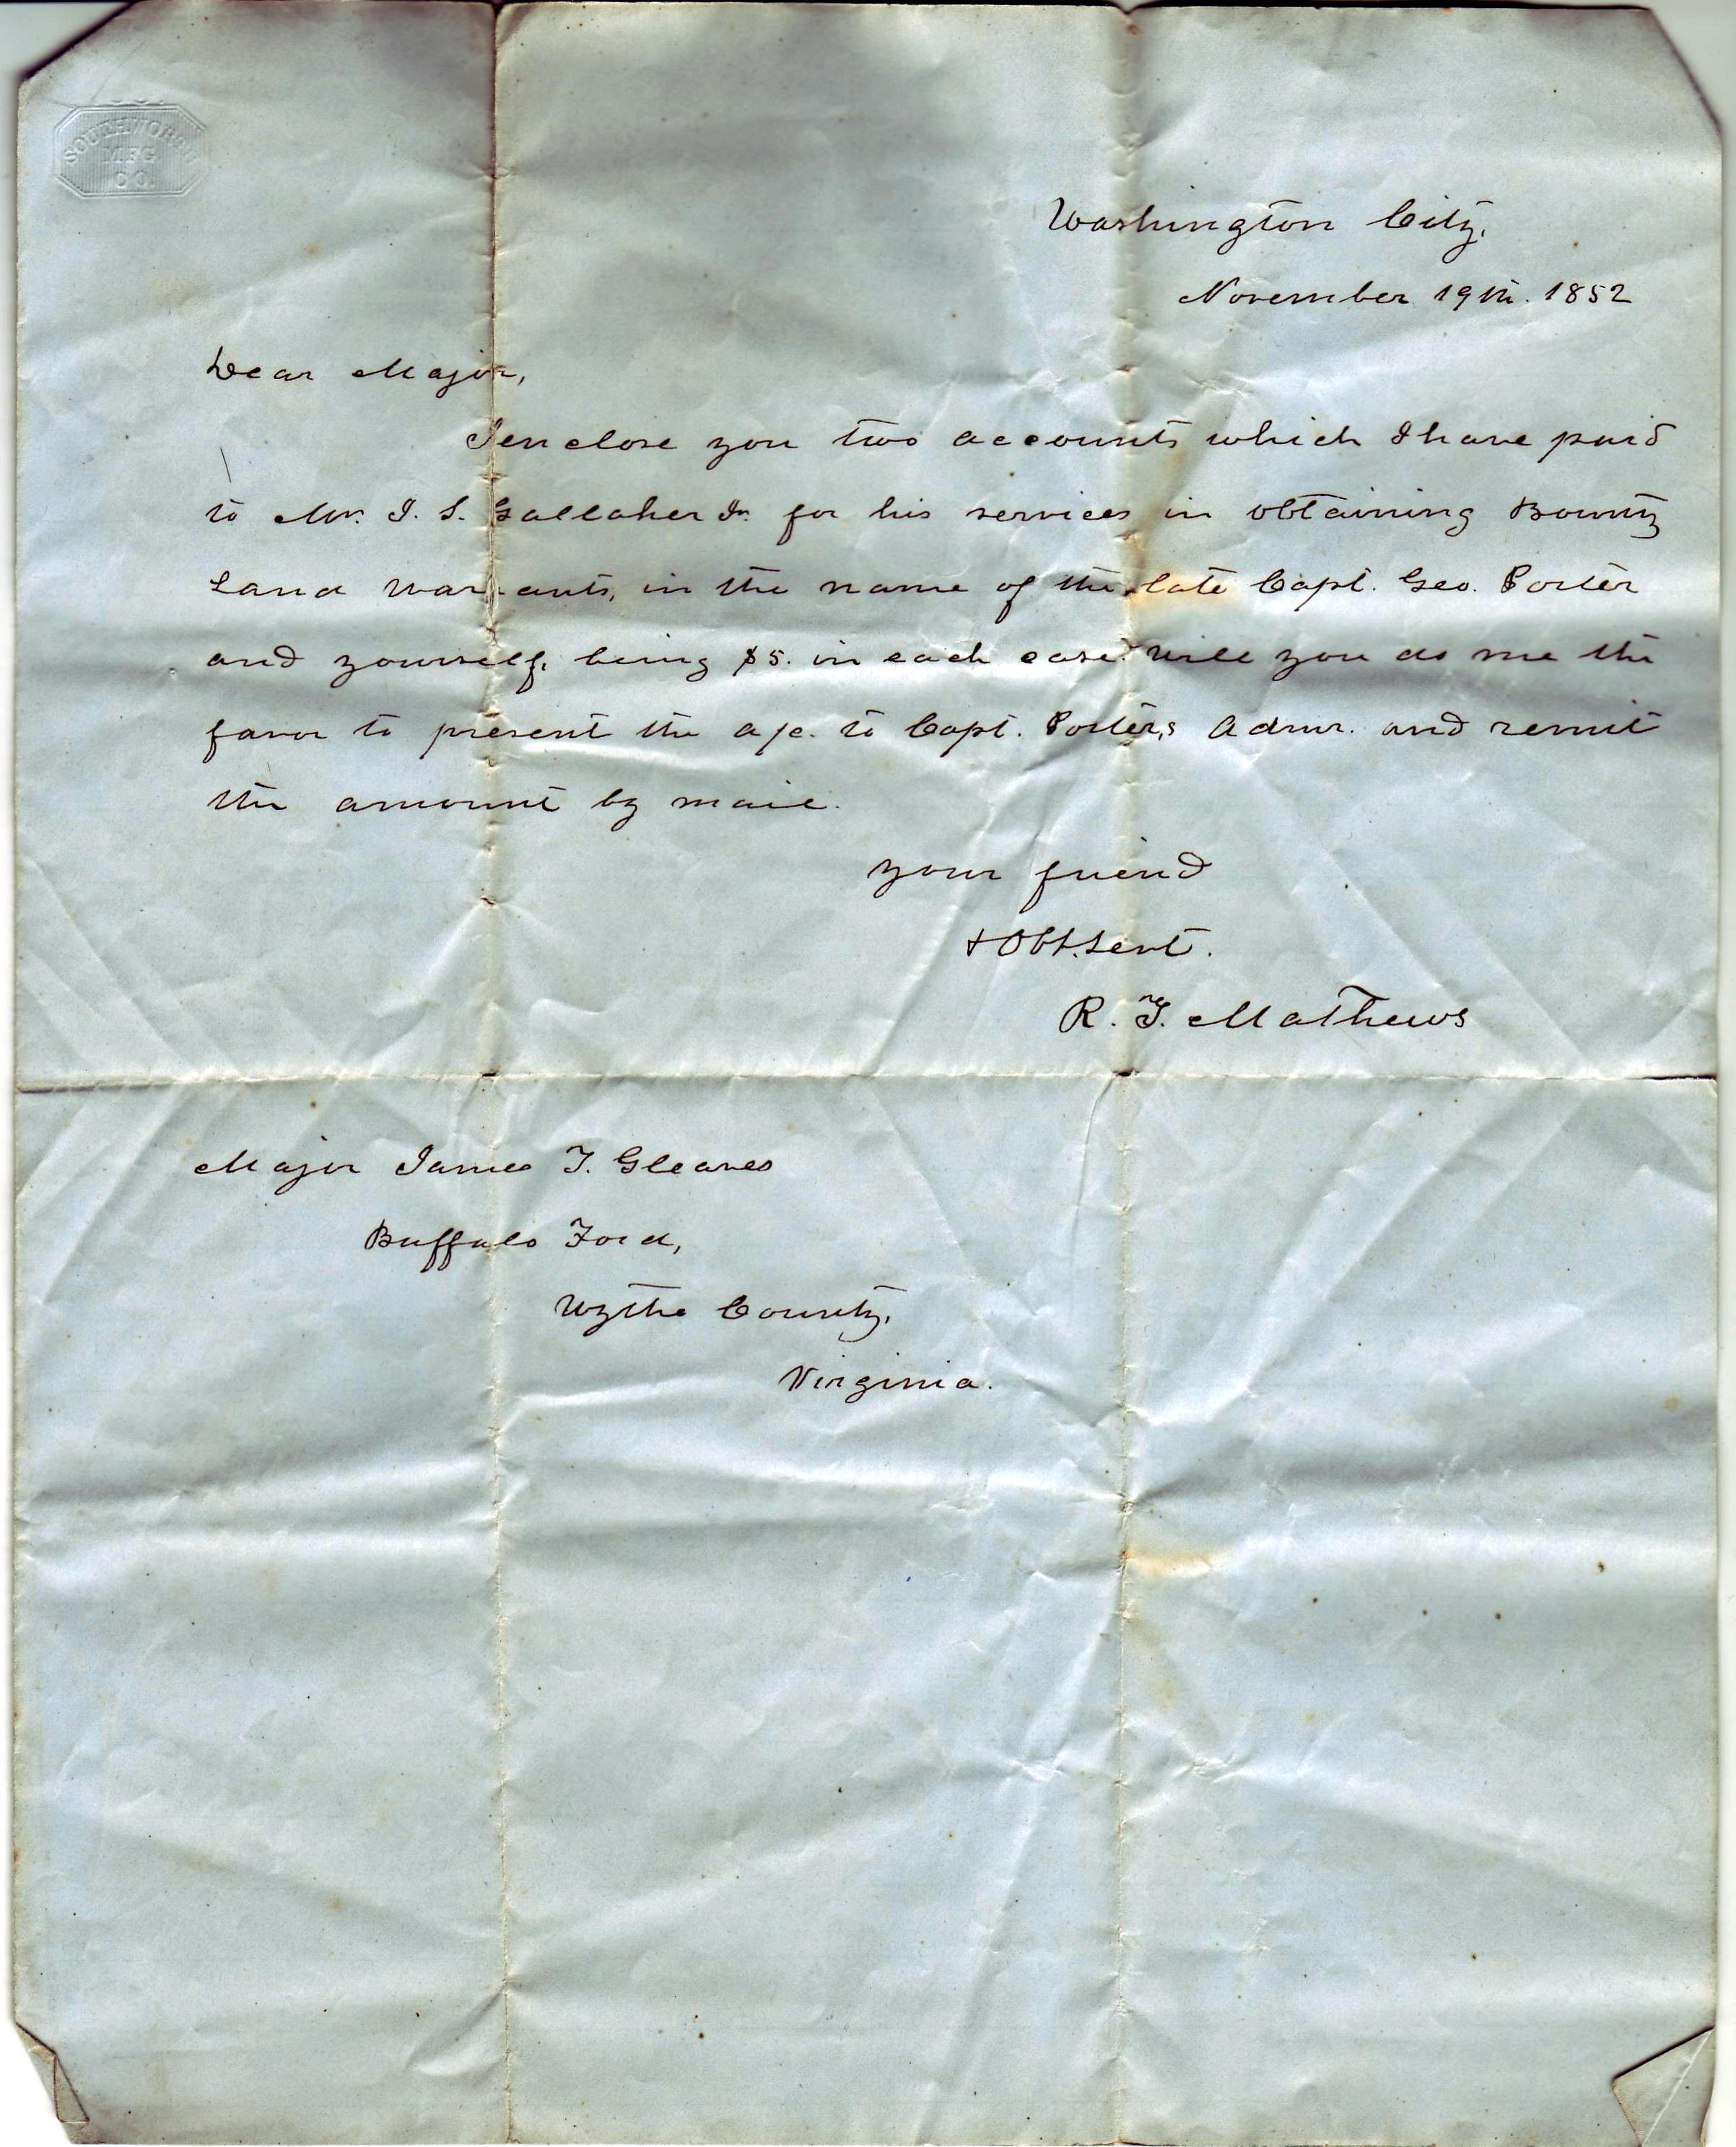 SOUTHWORTH
MFG
CO.
Washington City,
November 19th. 1852
Dear Major,
I enclose you two accounts which I have paid
to Mr. J. S. Gallaher Jr. for his services in obtaining Bounty
Land Warrants, in the name of the late Capt. Geo. Porter
and yourself, being $5. in each case. Will you do me the
favor to present the a/c. to Capt. Porter,s Admr. and remit
the amount by mail.
your friend
+ Obt. Servt.
R. F. Mathews
Major James T. Gleaves
Buffalo Ford,
Wythe County,
Virginia.